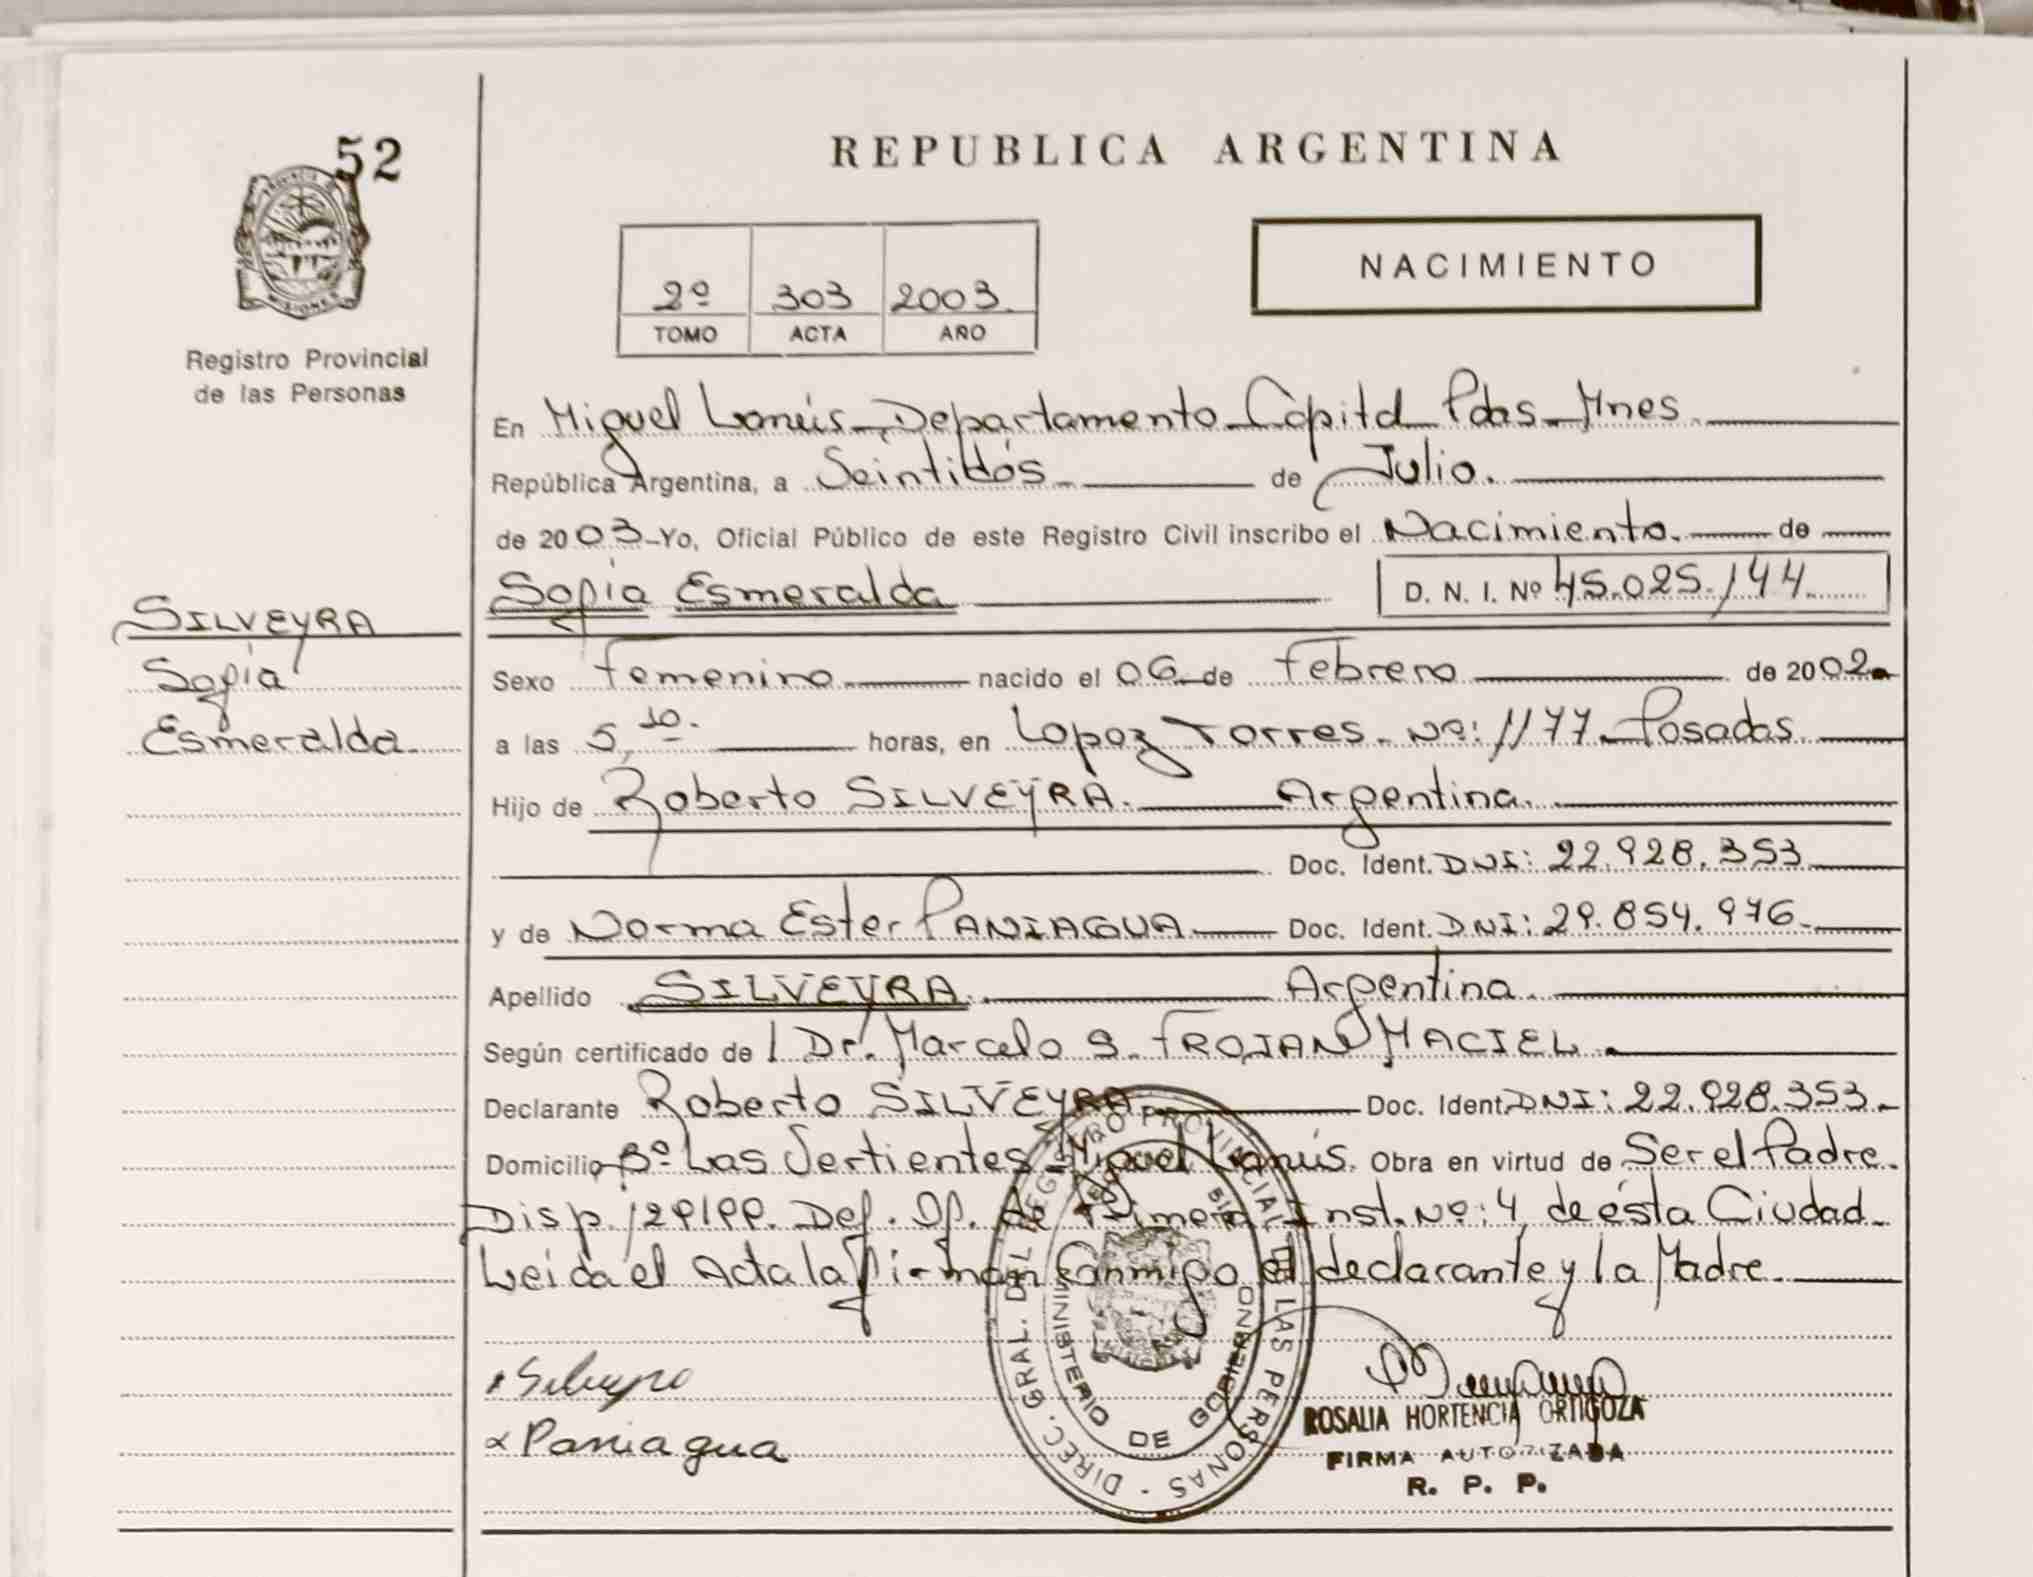 52
PROVINCIA DE MISIONES
Registro Provincial
de las Personas
REPUBLICA ARGENTINA
2º 303 2003.
TOMO ACTA AÑO
NACIMIENTO
En Miguel Lanús - Departamento Capital Pdas - Mnes.
República Argentina, a Veintidós de Julio.
de 2003 - Yo, Oficial Público de este Registro Civil inscribo el Nacimiento. de
Sofia Esmeralda D. N. I. Nº 45.025.144
SILVEYRA
Sofia
Esmeralda
Sexo Femenino nacido el 06 de Febrero de 2002
a las 5,10. horas, en Lopez Torres. Nº: 1177 - Posadas
Hijo de Roberto SILVEYRA. Argentina.
Doc. Ident. DNI: 22.928.353
y de Norma Ester PANIAGUA Doc. Ident. DNI: 29.854.976
Apellido SILVEYRA. Argentina.
Según certificado de Dr. Marcelo S. TROJAN MACIEL
Declarante Roberto SILVEYRA Doc. Ident. DNI: 22.928.353
Domicilio Bº Las Vertientes - Miguel Lanús. Obra en virtud de Ser el Padre.
Disp. 129/99. Def. Of. de Primera Inst. Nº: 4, de ésta Ciudad.
Leida el Acta la firman conmigo el declarante y la Madre.
Silveyra
Paniagua
DIREC. GRAL. DEL REGISTRO PROVINCIAL DE LAS PERSONAS
MINISTERIO DE GOBIERNO
ROSALIA HORTENCIA ORTIGOZA
FIRMA AUTORIZADA
R. P. P.